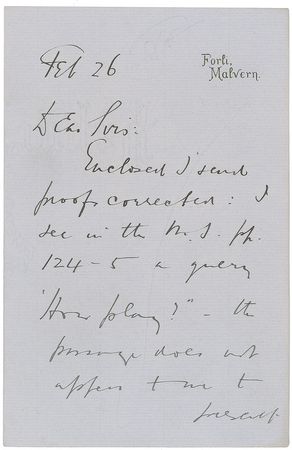 Feb 26
Forli,
Malvern.
Dear Sirs:
Enclosed I send
proofs corrected: I
see in the M.S. pp.
124-5 a query
"Howplay?" - the
passage does not
appear to me to